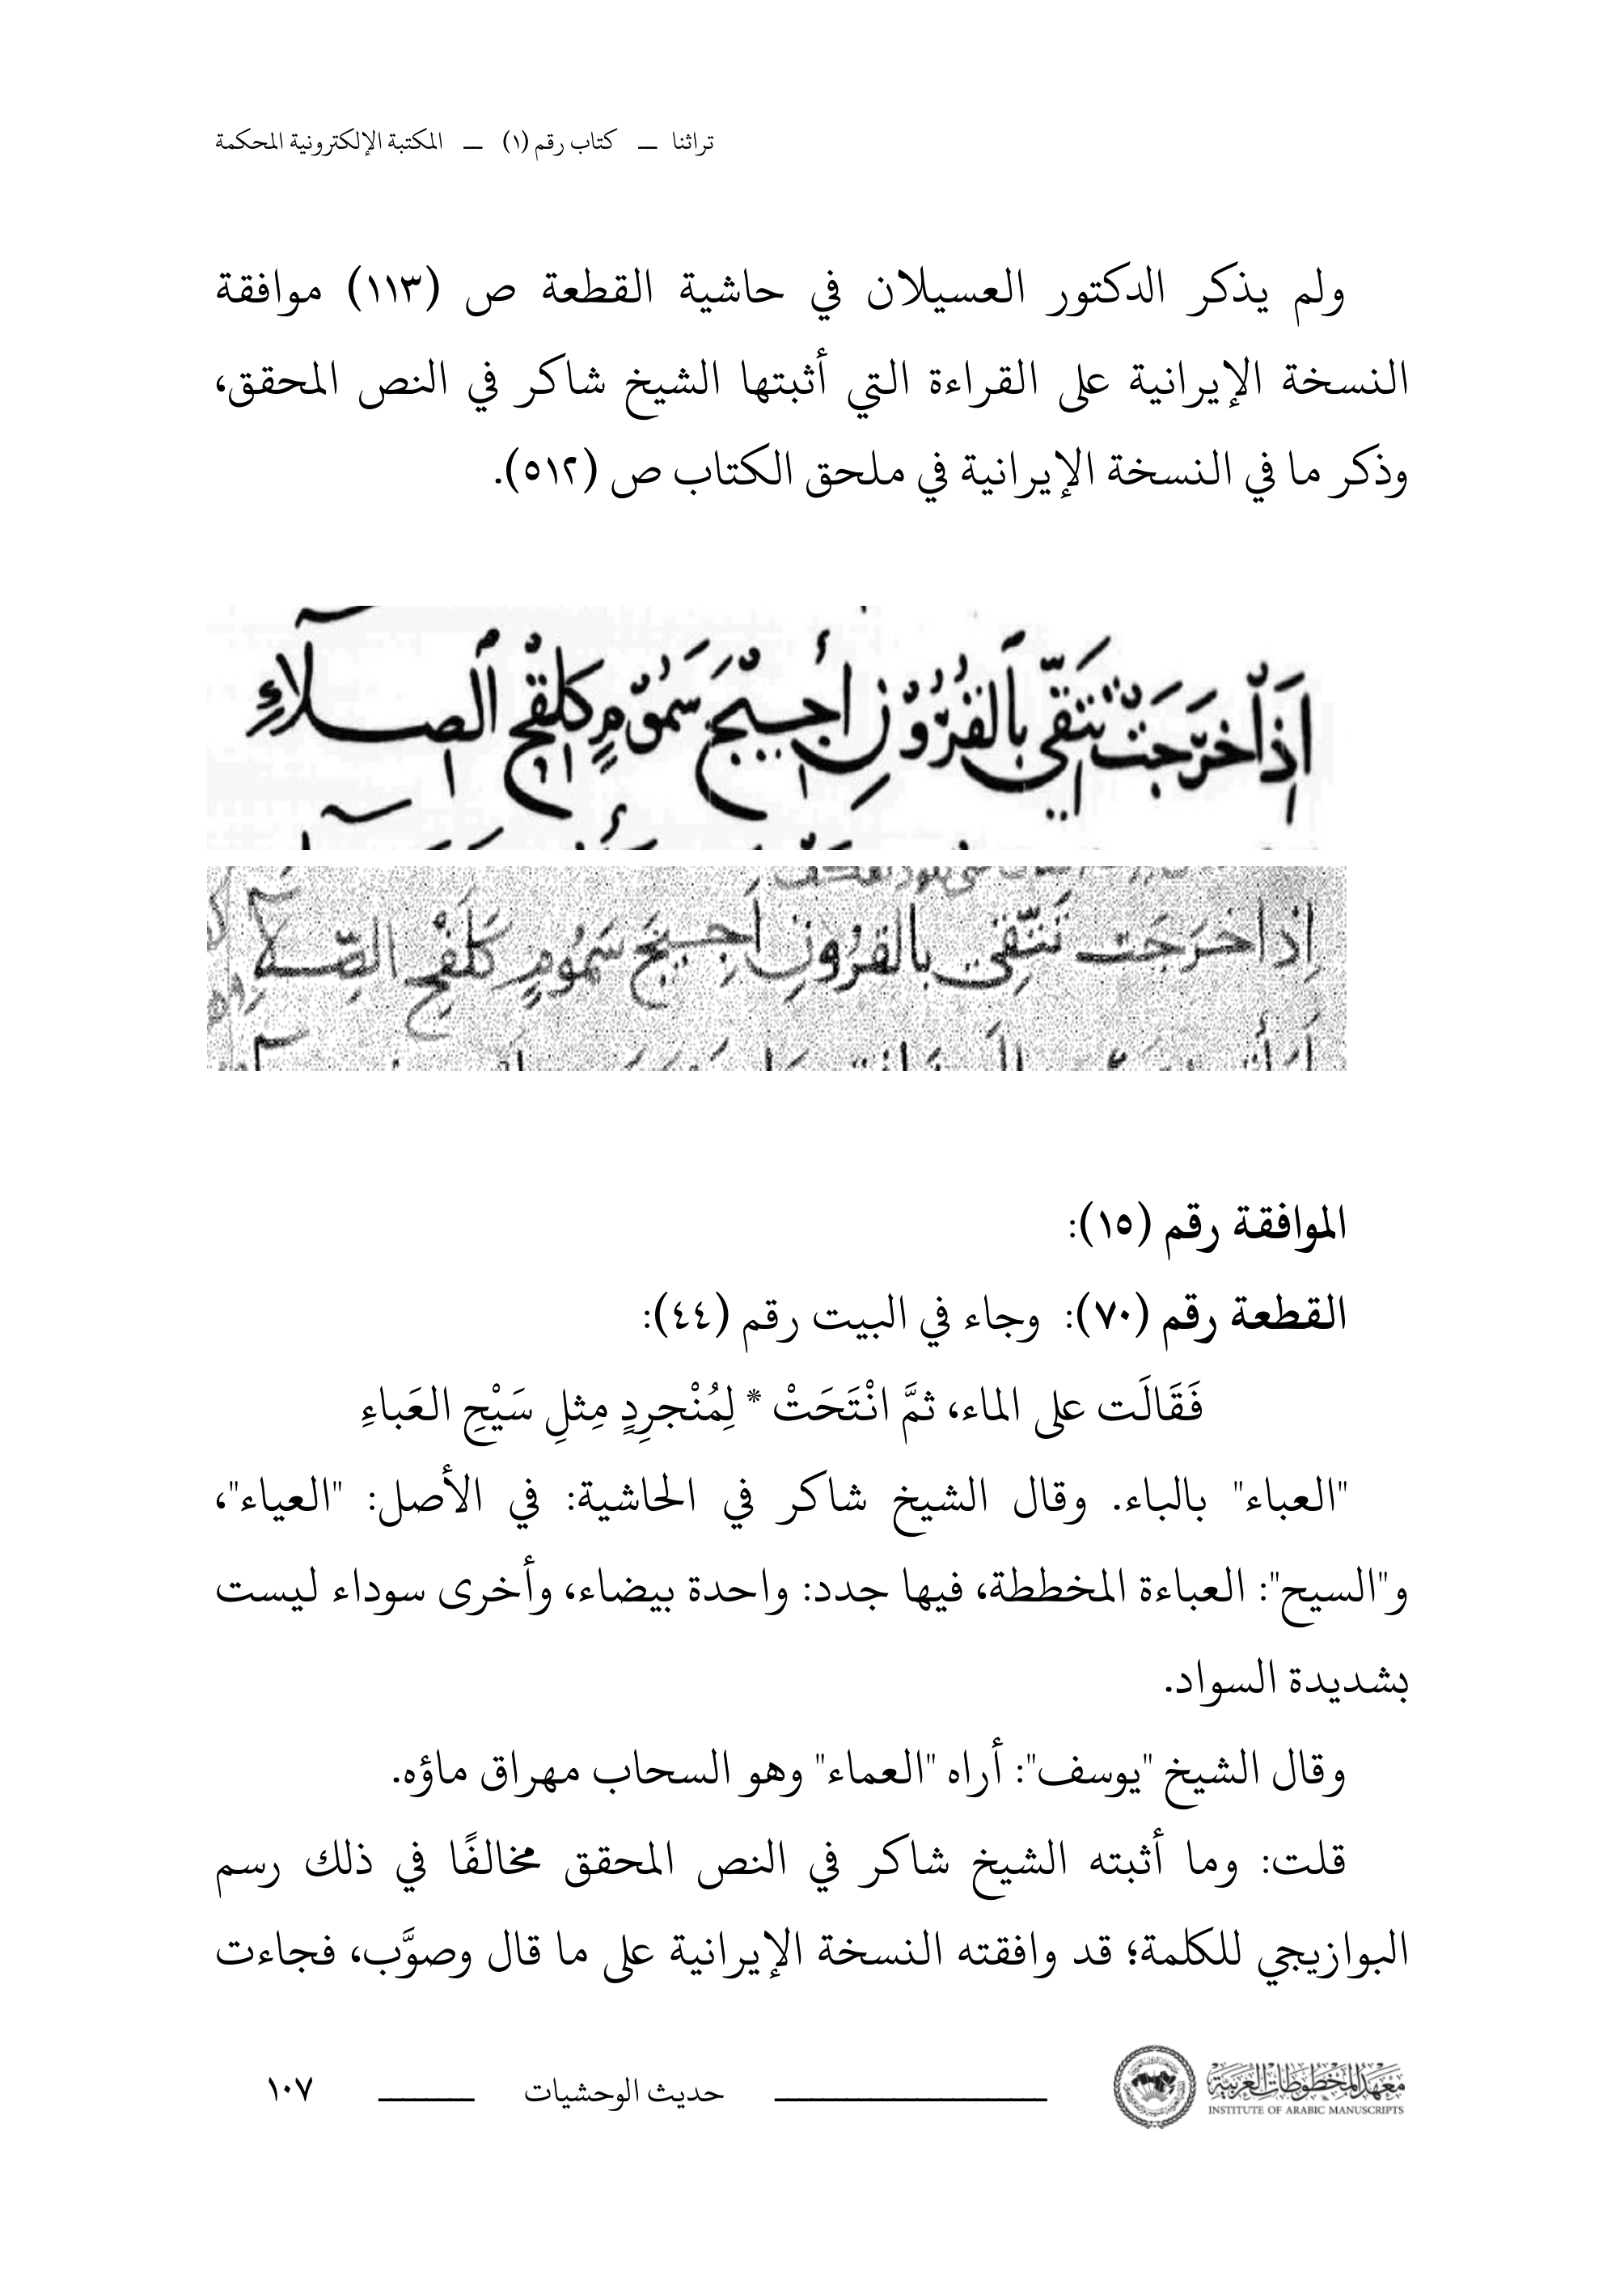 تراثنا — كتاب رقم (١) — المكتبة الإلكترونية المحكمة
ولم يذكر الدكتور العسيلان في حاشية القطعة ص (١١٣) موافقة
النسخة الإيرانية على القراءة التي أثبتها الشيخ شاكر في النص المحقق،
وذكر ما في النسخة الإيرانية في ملحق الكتاب ص (٥١٢).
إذا خرجت تتقي بالقرون أجيج سموم كلفح الصلاء
إذا خرجت تتقي بالقرون أجيج سموم كلفح الصلاء
الموافقة رقم (١٥):
القطعة رقم (٧٠): وجاء في البيت رقم (٤٤):
فَقَالَت على الماء، ثمَّ انْتَحَتْ * لِمُنْجرِدٍ مِثلِ سَيْحِ العَباءِ
"العباء" بالباء. وقال الشيخ شاكر في الحاشية: في الأصل: "العياء"،
و"السيح": العباءة المخططة، فيها جدد: واحدة بيضاء، وأخرى سوداء ليست
بشديدة السواد.
وقال الشيخ "يوسف": أراه "العماء" وهو السحاب مهراق ماؤه.
قلت: وما أثبته الشيخ شاكر في النص المحقق مخالفًا في ذلك رسم
البوازيجي للكلمة؛ قد وافقته النسخة الإيرانية على ما قال وصوَّب، فجاءت
معهد المخطوطات العربية
INSTITUTE OF ARABIC MANUSCRIPTS
حديث الوحشيات
١٠٧